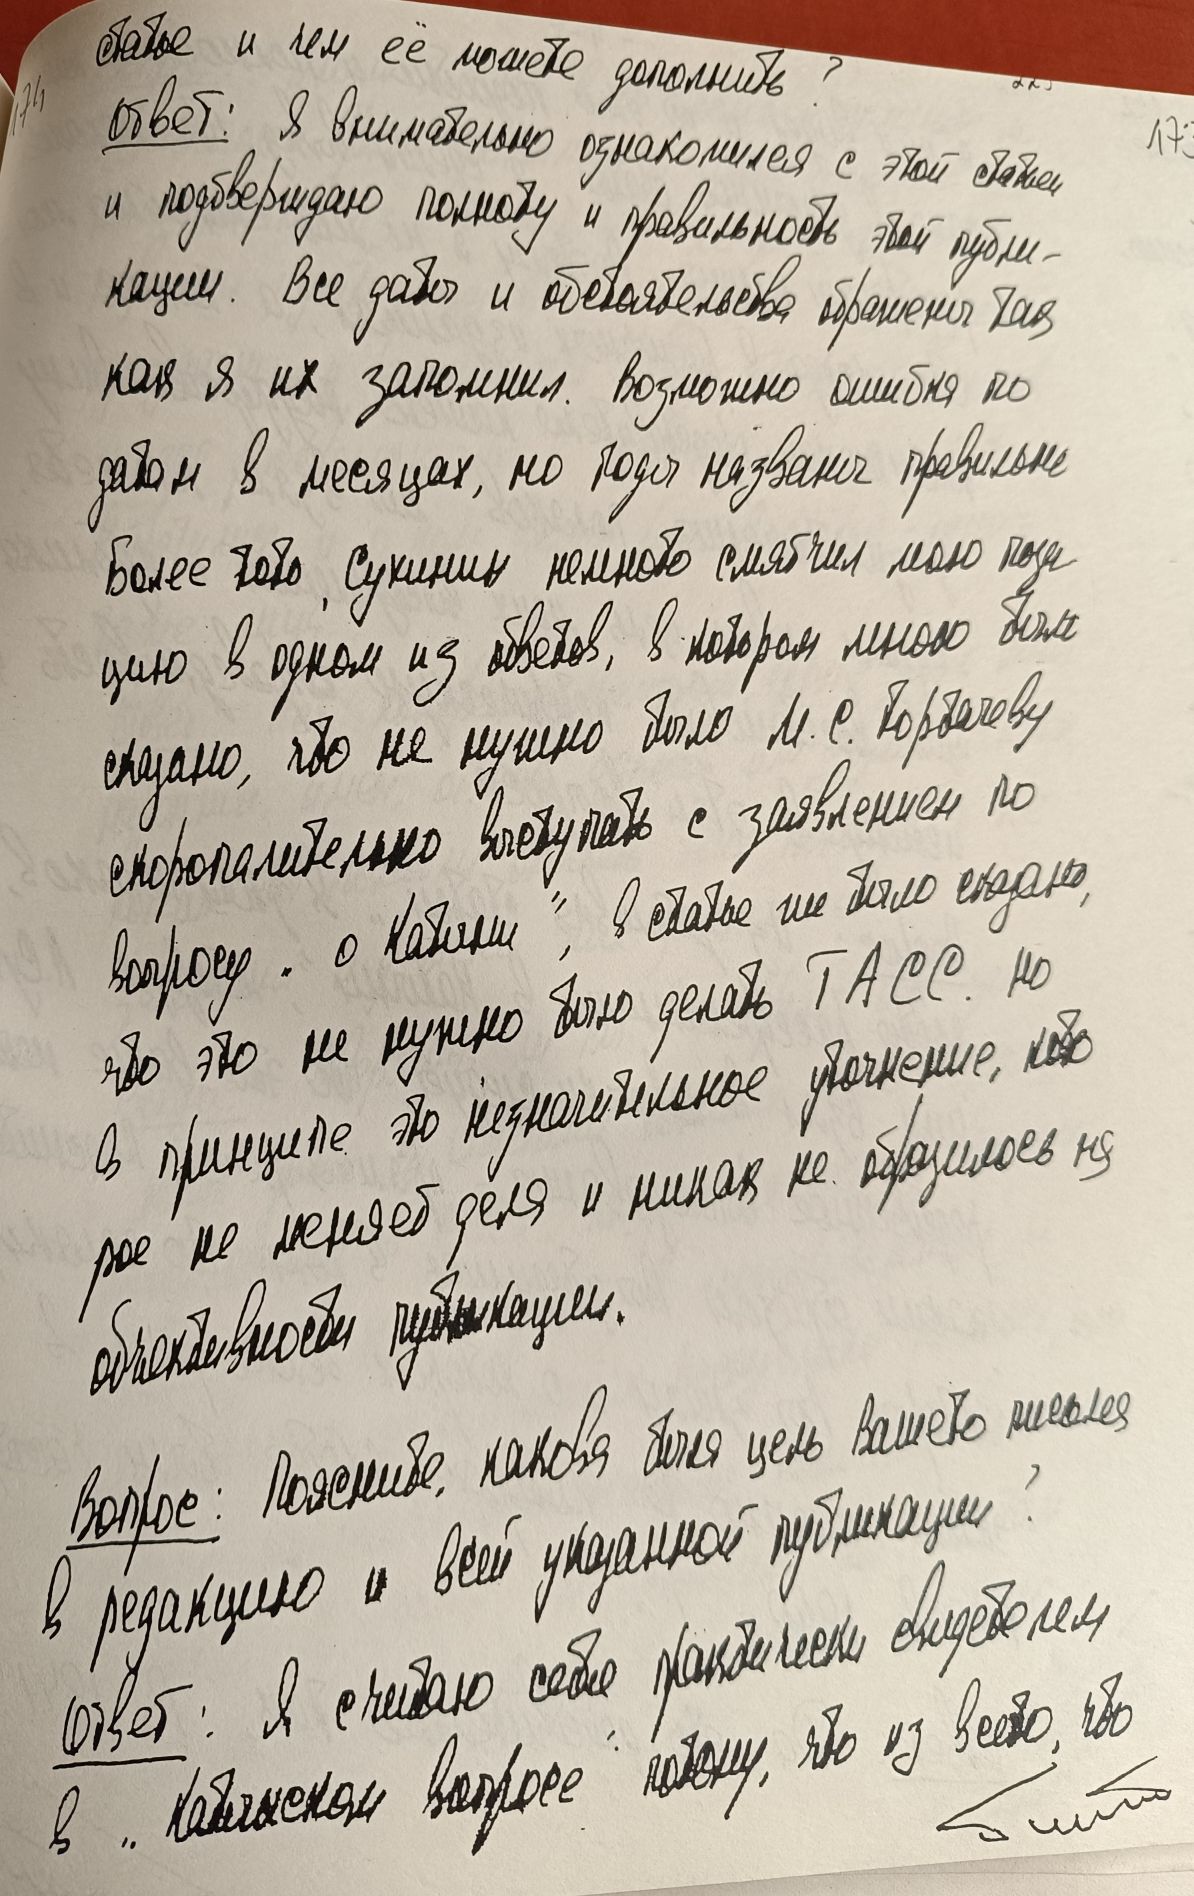 статье и чем её можете дополнить?
Ответ: Я внимательно ознакомился с этой статьей
и подтверждаю полноту и правильность этой публи-
кации. Все даты и обстоятельства отражены так
как я их запомнил. Возможно ошибка по
датам в месяцах, но годы названы правильно
Более того, Сухинин немного смягчил мою пози
цию в одном из ответов, в котором мною было
сказано, что не нужно было М.С. Горбачеву
скоропалительно выступать с заявлением по
вопросу "о Катыни", в статье же было сказано,
что это не нужно было делать ТАСС. но
в принципе это незначительное уточнение, кото
рое не меняет дела и никак не отразилось на
объективности публикации.
Вопрос: Поясните, какова была цель Вашего письма
в редакцию и всей указанной публикации?
Ответ: Я считаю себя практически свидетелем
в "Катынском вопросе" потому, что из всего, что
174